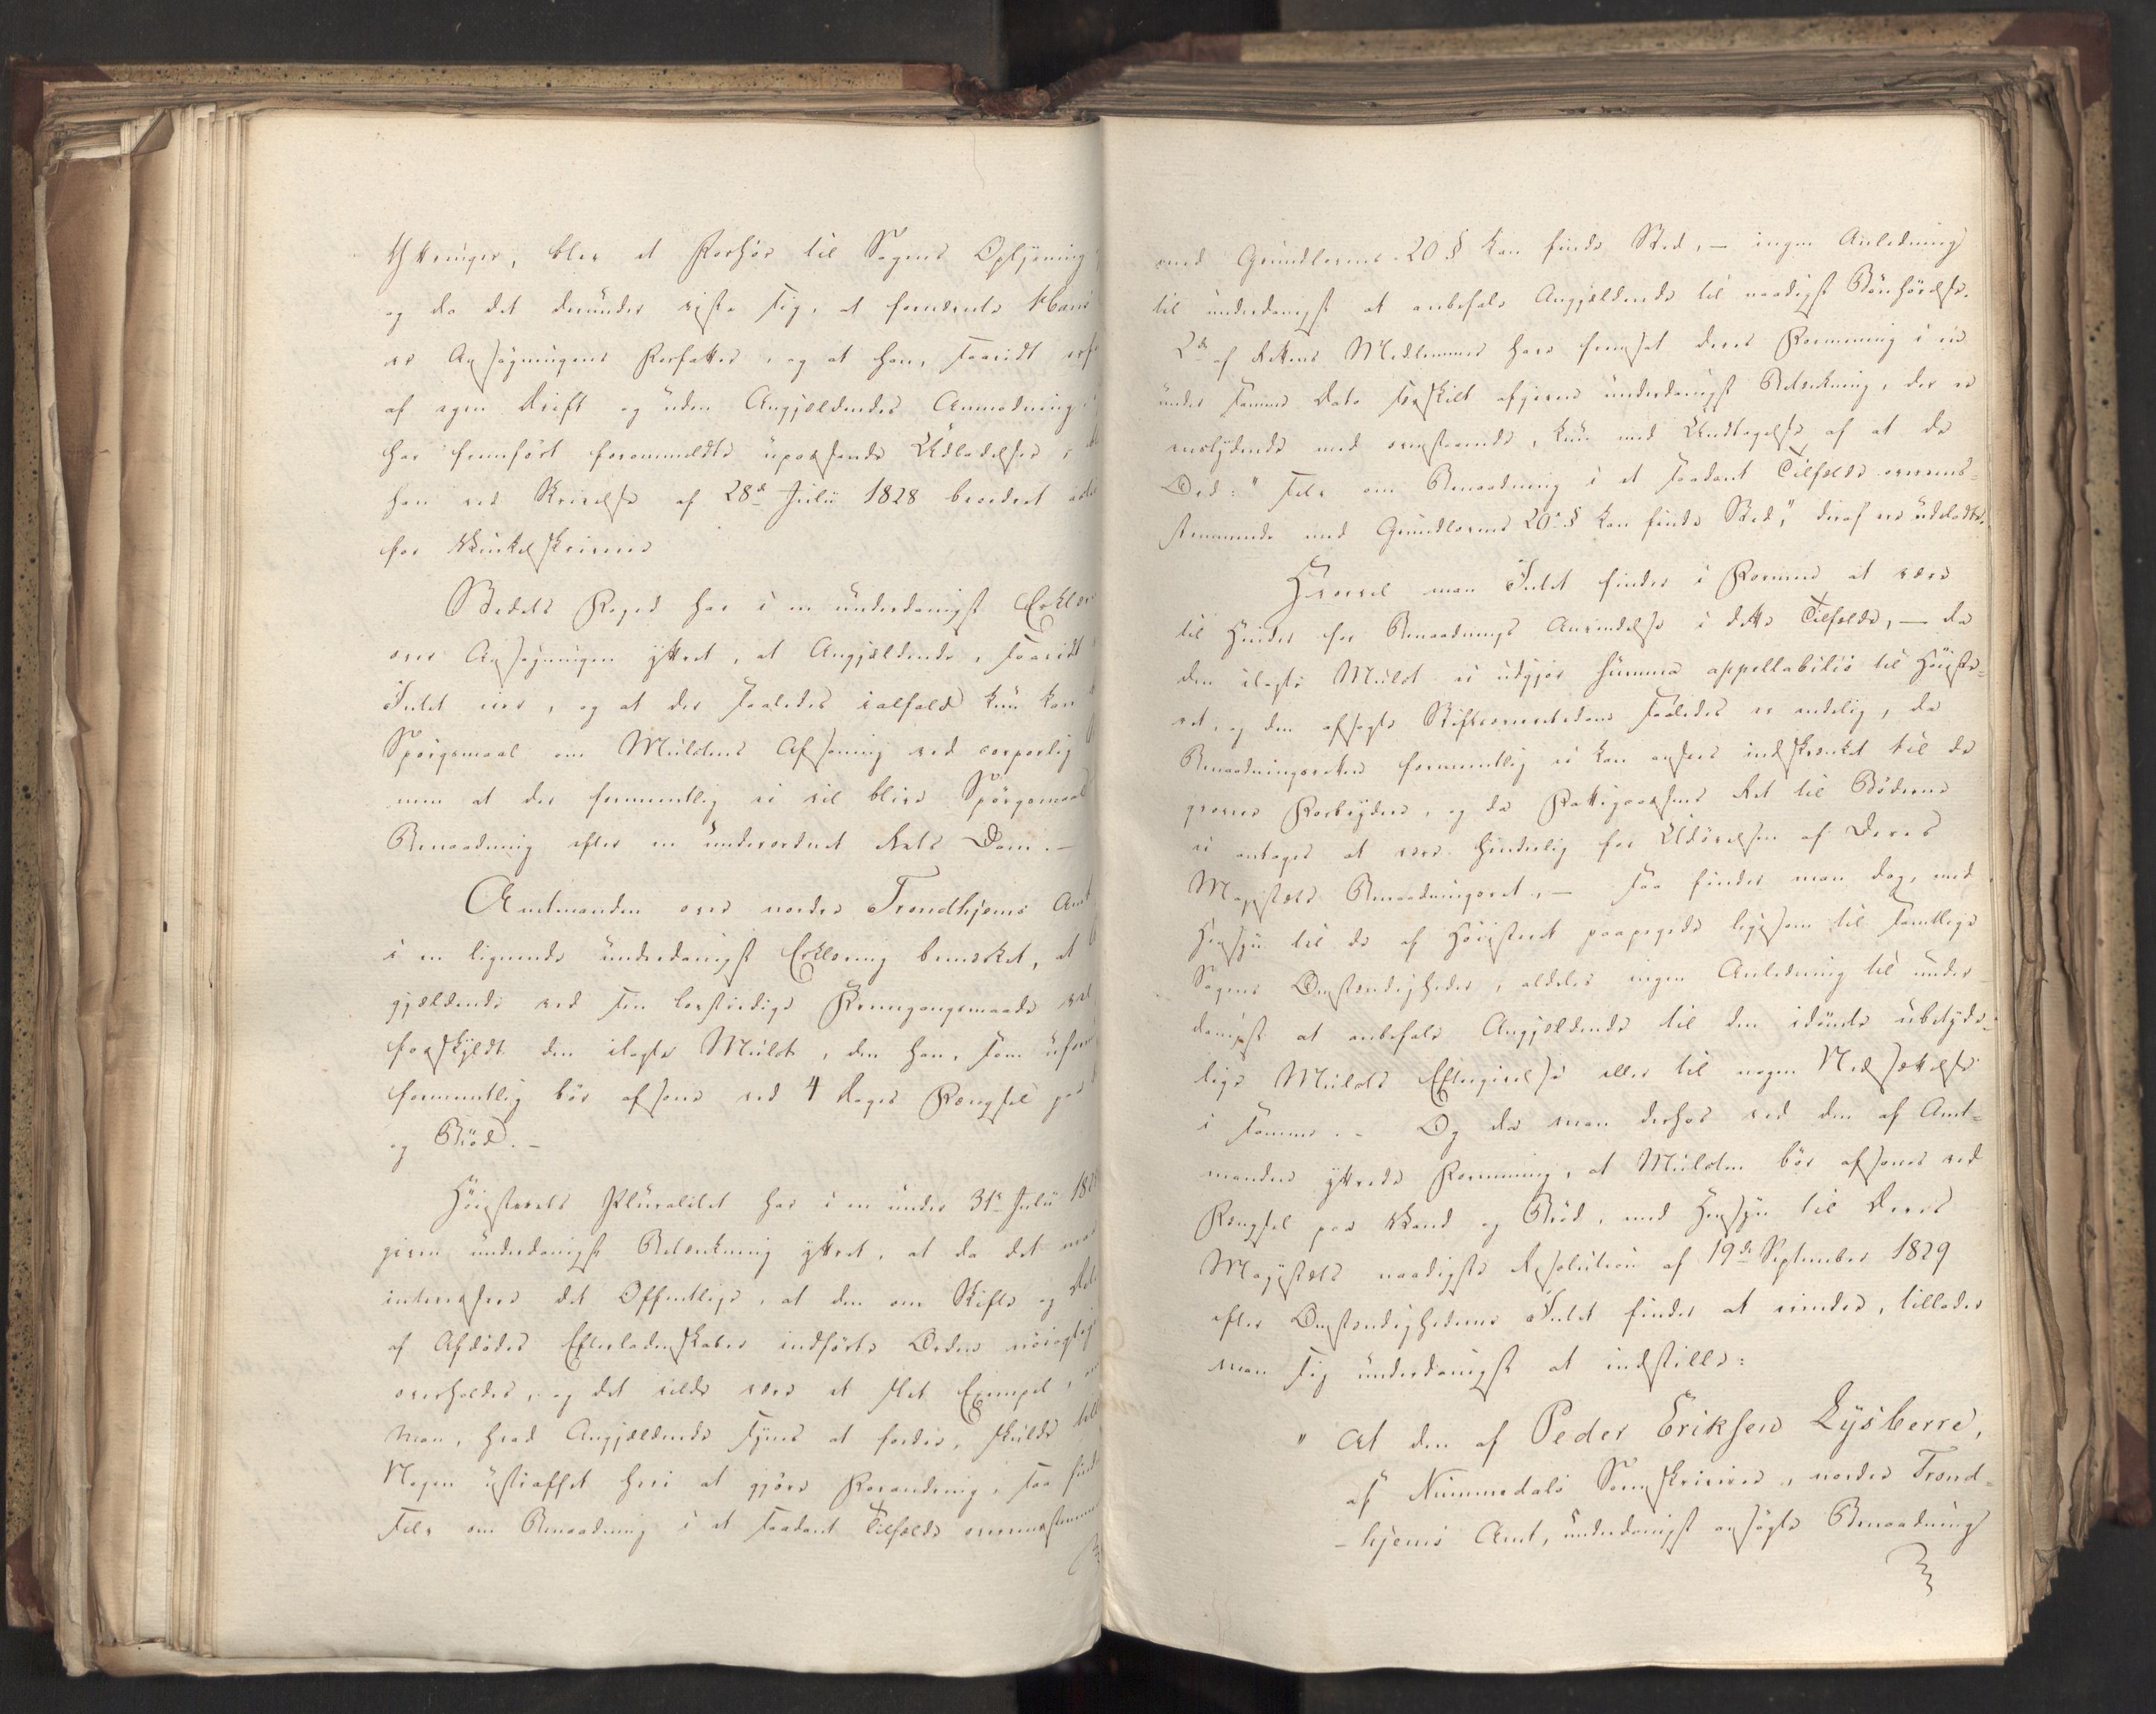 Yttringer, blev et Forhör til Sagens Oplysning
og da det derunder viste sig, at fornævnte Hans
er Ansøgningens Forfatter, og at han, saavidt
af egen Drift og uden Angjældendes Anmodning
har fremfört foranmeldte upassende Udladelser,
han ved Skrivelse af 28d Julii 1828
for Vinkelskriver
Stedets Foged har i en underdanigst Erklær
over Ansøgningen yttret, at Angjældende, saavidt
Intet eier, og at der saaledes ialfald kun kan
Spörgsmaal om Mulctens Afsoning ved corporlig
men at der formeentlig ei vil blive Spörgsmaal
Benaadning efter en underordnet Rets Dom. -
Amtmanden over nordre Trondhjems Amt
i en lignende underdanigst Erklæring bemærket, at
gjældende ved sin Fremgangsmaade vel
forskyldt den ilagte Mulct, den han, som
formeentlig bör afsone ved 4 Dages Fængsel paa
og Bröd. -
Höiesterets Pluralitet har i en under 31te Julii 18
given underdanigst Betænkning yttret, at da det maa
interessere det Offentlige, at den om Skifte og
af Afdødes Efterladenskaber indförte Orden nöiagtig
overholdes, og det vilde være et slet Exempel,
man, hvad Angjældende synes at fordre, skulde
Nogen ustraffet heri at gjöre Forandring, saa
selv om Benaadning i et saadant Tilfælde overensstemme
med Grundlovens 20 § kan finde Sted, - ingen Anledning
til underdanigst at anbefale Angjældende til naadigst Bönhörelse.
2de af Rettens Medlemmer have fremsat deres Formening i en
under samme Dato særskilt afgiven underdanigst Betænkning, der er
eenslydende med ovenstaaende, kun med Undtagelse af at de
Ord: "selv om Benaadning i et saadant Tilfælde overeens-
stemmende med Grundlovens 20de § kan finde Sted," deraf ere udeladte.
Hvorvel man Intet finder i Formen at være
til Hinder for Benaadnings Anvendelse i dette Tilfælde, - da
den ilagte Mulct ei udgjør summa appellabilis til Höieste-
ret, og den afsagte Stiftsoverretsdom saaledes er endelig, da
Benaadningsretten formeentlig ei kan ansees indskrænket til de
grovere Forbrydere, og da Fattigcassens Ret til Böderne
ei antages at være hinderlig for Udövelsen af Deres
Majestæts Benaadningsret, - saa finder man dog, med
Hensyn til de af Höiesteret paapegede ligesom til samtlige
Sagens Omstændigheder, aldeles ingen Anledning til under-
danigst at anbefale Angjældende til den idömte ubetyde-
lige Mulcts Eftergivelse eller til nogen Nedsættelse
i samme. - Og da man derhos ved den af Amt-
manden yttrede Formening, at Mulcten bör afsones ved
Fængsel paa Vand og Bröd, med Hensyn til Deres
Majestæts naadigste Resolution af 19de September 1829
efter Omstændighederne Intet finder at erindre, tillader
man sig underdanigst at indstille:
" At den af Peder Eriksen Lysberre,
af Nummedals Sorenskriverie, nordre Trond-
-hjems Amt, underdanigst ansögte Benaadning